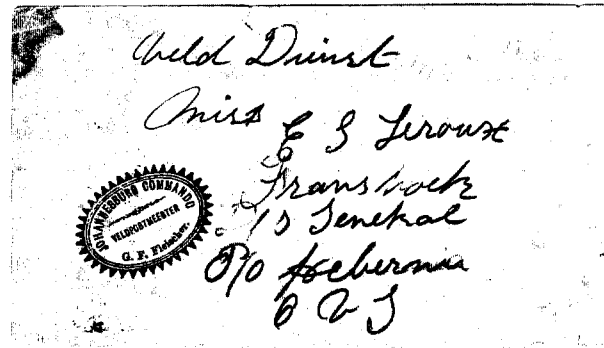 Veld Dienst
Miss E S Leroux
Franshoek
Is Senekal
P/o
O V S
JOHANNESBURG COMMANDO
VELDPOSTMEESTER
G. F. Fleischer.